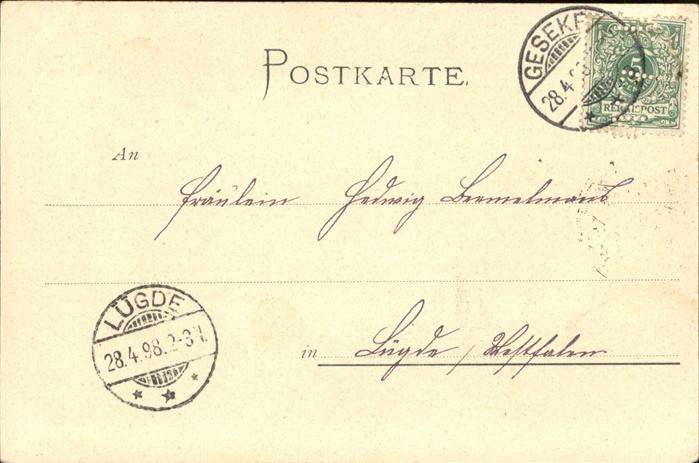 GESEKE
28.4.98
5
REICHSPOST
POSTKARTE.
An
Fräulein Hedwig Bermelmans
LÜGDE
28.4.98.2-3N.
in Lügde, Westfalen